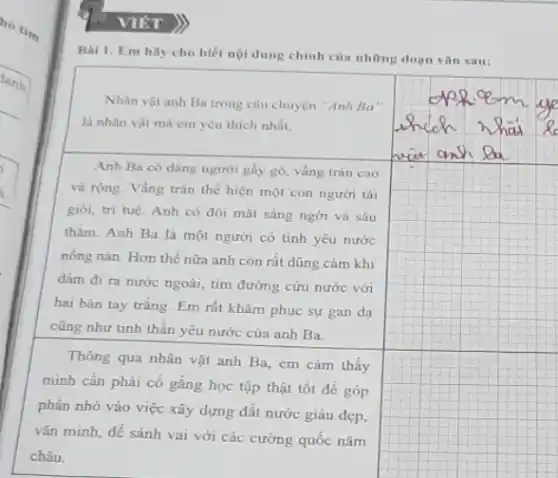 hó tìm
VIẾT
Bài 1. Em hãy cho biết nội dung chính của những đoạn văn sau:
danh
Nhân vật anh Ba trong câu chuyện "Anh Ba"
là nhân vật mà em yêu thích nhất.
em yê
thích nhất là
vật anh Ba
Anh Ba có dáng người gầy gò, vầng trán cao
và rộng. Vầng trán thể hiện một con người tài
giỏi, trí tuệ. Anh có đôi mắt sáng ngời và sâu
thẳm. Anh Ba là một người có tình yêu nước
nồng nàn. Hơn thế nữa anh còn rất dũng cảm khi
dám đi ra nước ngoài, tìm đường cứu nước với
hai bàn tay trắng. Em rất khâm phục sự gan dạ
cũng như tinh thần yêu nước của anh Ba.
Thông qua nhân vật anh Ba, em cảm thấy
mình cần phải cố gắng học tập thật tốt để góp
phần nhỏ vào việc xây dựng đất nước giàu đẹp,
văn minh, để sánh vai với các cường quốc năm
châu.